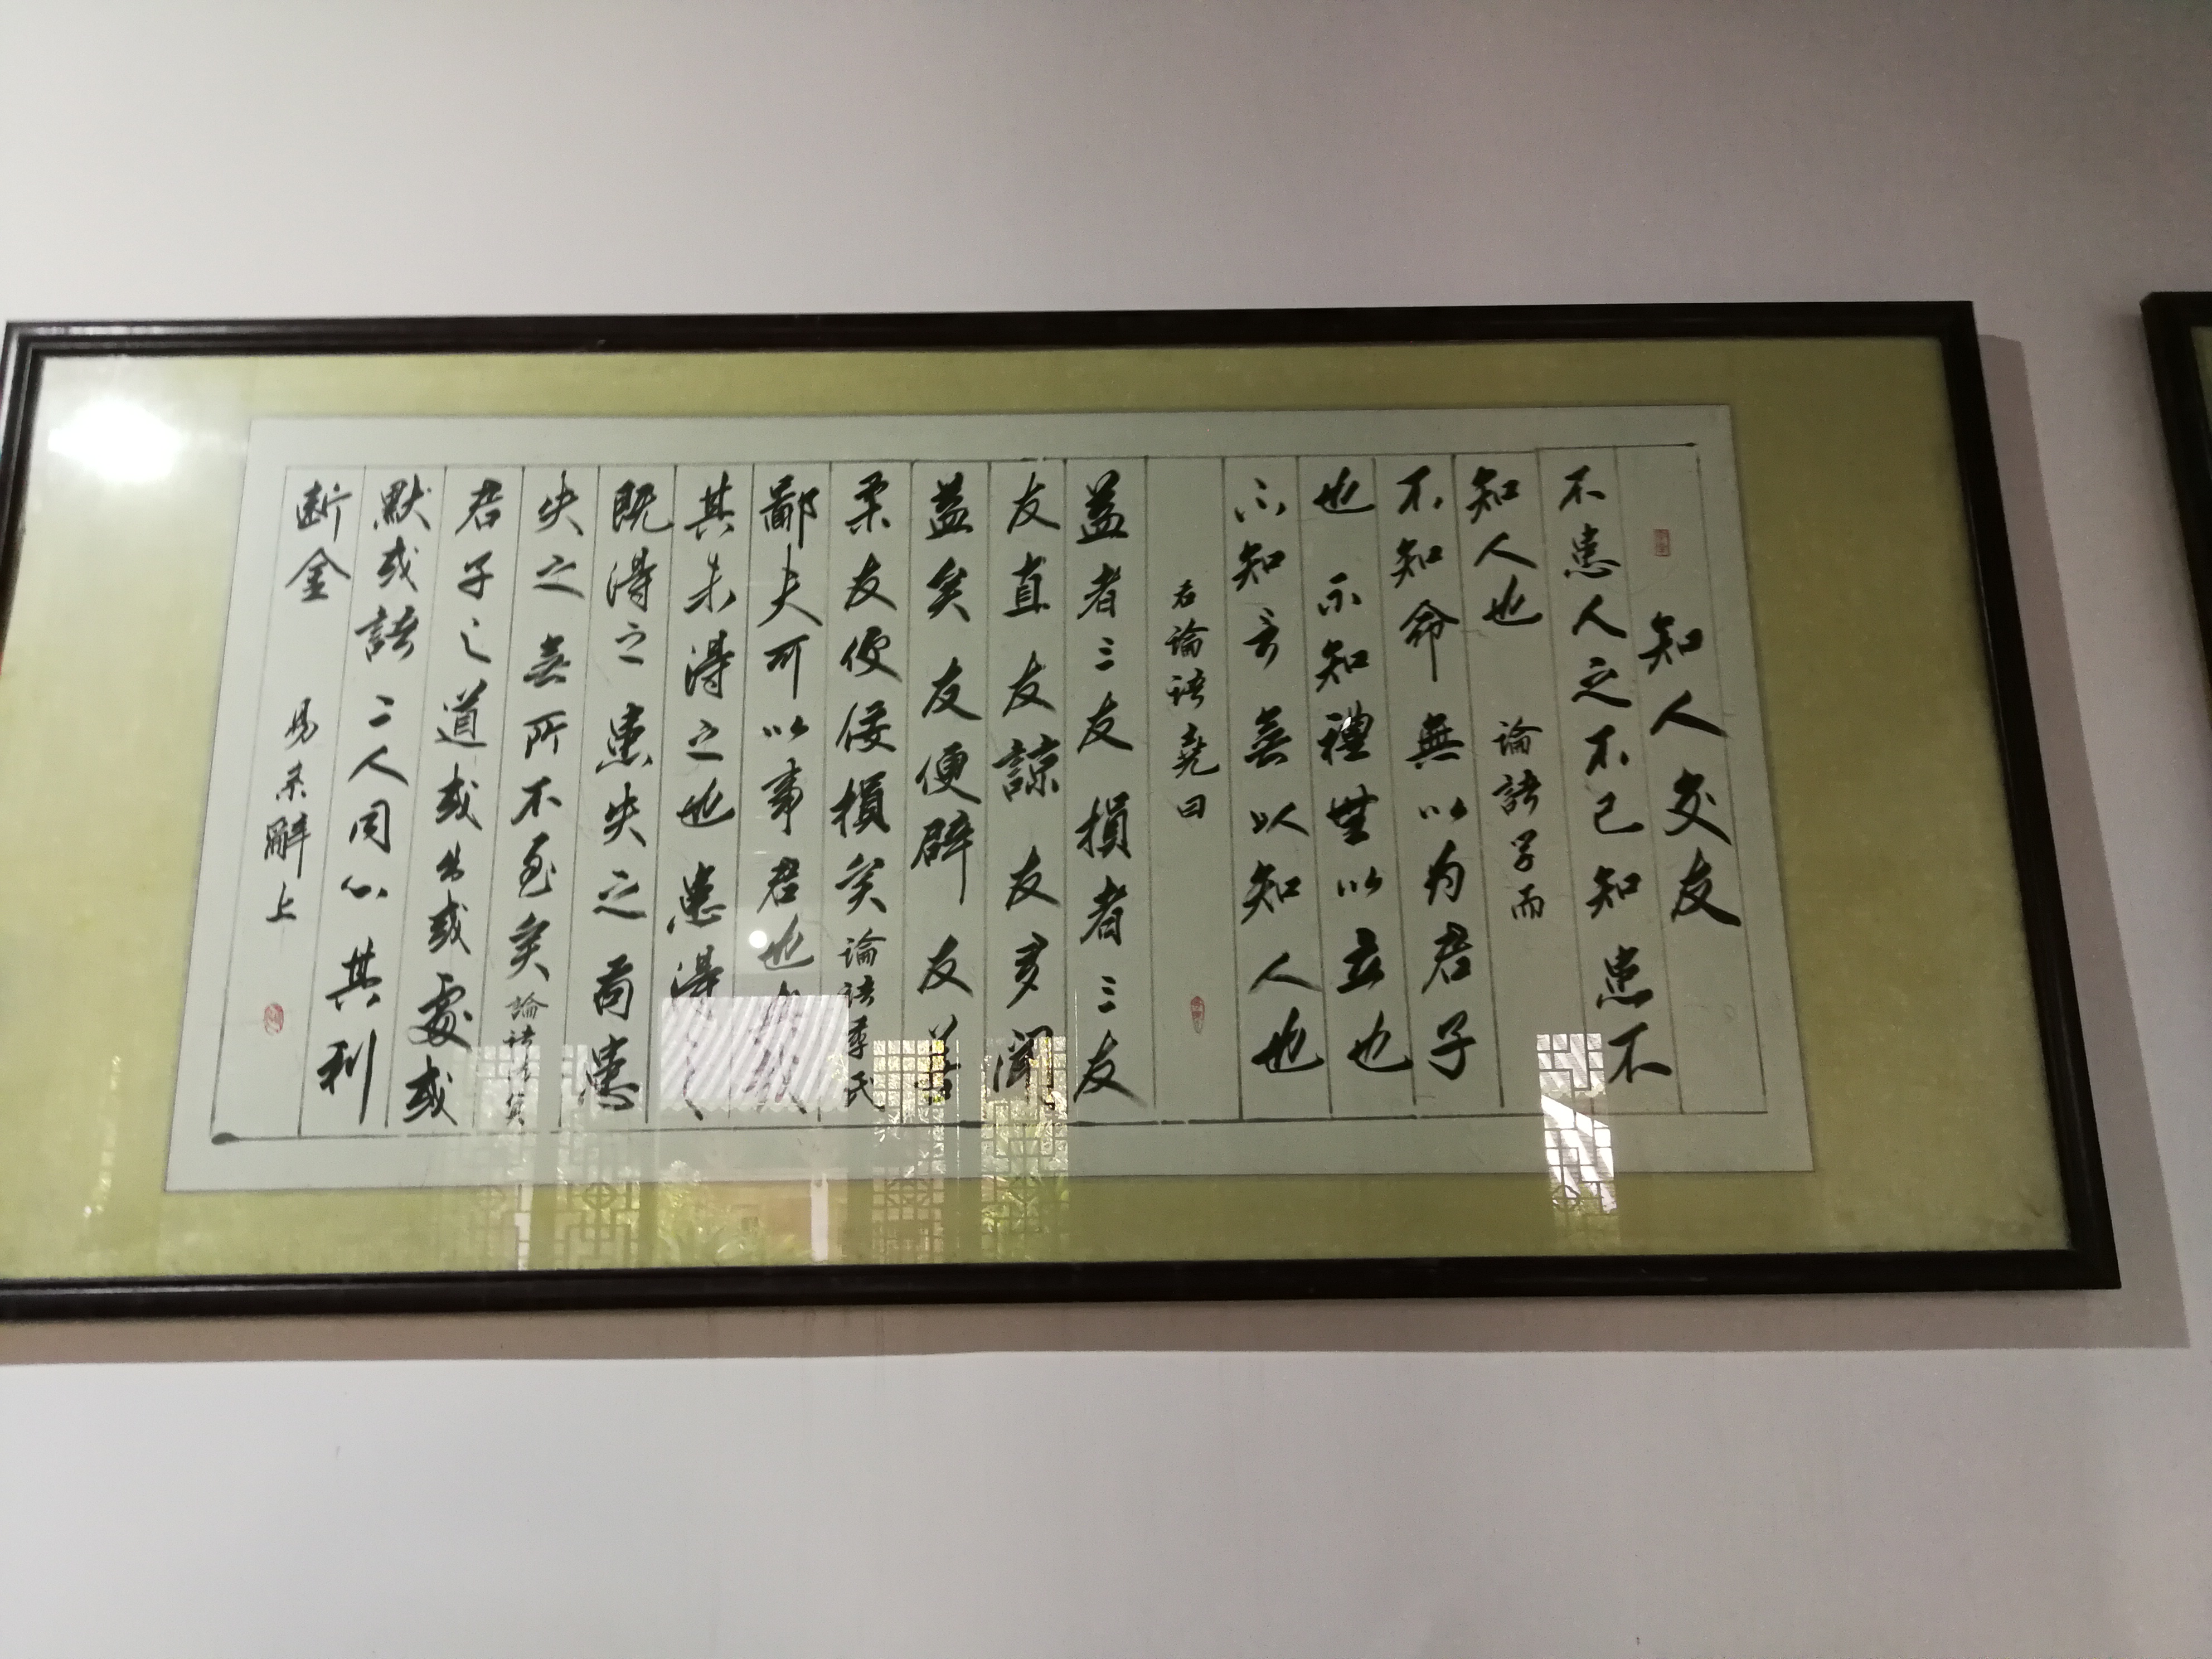 知人交友
不患人之不己知患不
知人也 論語学而
不知命無以为君子
也不知禮無以立也
不知言無以知人也
右論语堯曰
益者三友損者三友
友直友諒友多闻
益矣友便辟友善
柔友便佞損矣論語季氏
鄙夫可以事君也
其未得之也患得之
既得之患失之苟患
失之無所不至矣論语陽貨
君子之道或出或處或
默或語二人同心其利
断金 易系辭上